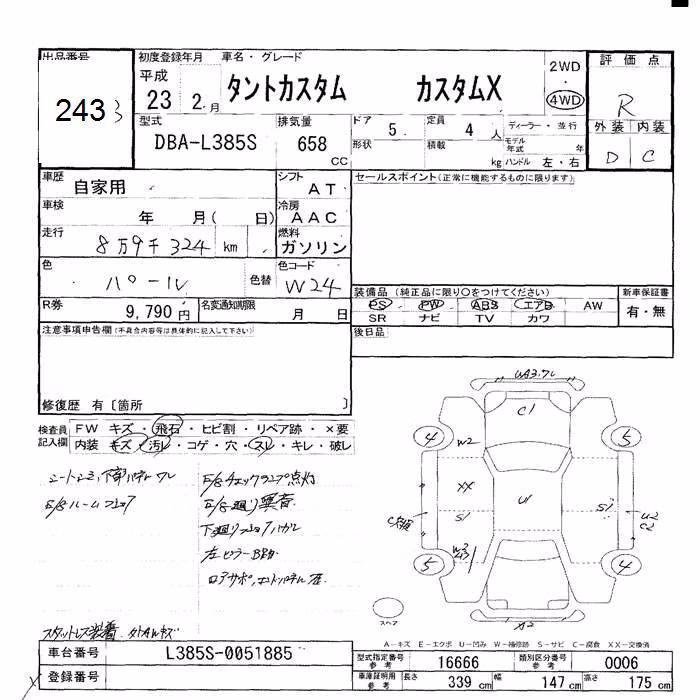 出品番号 初度登録年月 車名・グレード 2WD 評価点
平成 23 2.月 タントカスタム カスタムX 4WD R
243 3
型式 排気量 ドア 5. 定員 4 人 ディーラー・並行 外装 内装
DBA-L385S 658 CC 形状 積載 kg モデル年式 年 ハンドル 左・右 D C
車歴 自家用 シフト AT セールスポイント(正常に機能するものに限ります)
車検 年 月( 日) 冷房 AAC
走行 8万9千324 km 燃料 ガソリン
色 パール 色替 色コード W24
装備品(純正品に限り〇をつけてください) 新車保証書
R券 9,790円 名変通知期限 月 日 PS PW ABS エアB AW 有・無
SR ナビ TV カワ
注意事項申告欄(不具合内容等は具体的に記入して下さい) 後日品
修復歴 有〔箇所 〕
検査員記入欄 FW キズ・飛石・ヒビ割・リペア跡・×要
内装 キズ・汚レ・コゲ・穴・スレ・キレ・破レ
E/Gチェックランプ点灯
E/Gルーム
E/G廻り異音
下廻り
UA3.ワレ
C1
4 5
W2
XX
S1 U1 S1
U2
C2
W3
5 4
スペア
A2
スタットレス装着
A-キズ E-エクボ U-凹み W-補修跡 S-サビ C-腐食 XX-交換済
車台番号 L385S-0051885 型式指定番号参考 16666 類別区分番号参考 0006
登録番号 車庫証明用参考 長さ 339 cm 幅 147 cm 高さ 175 cm